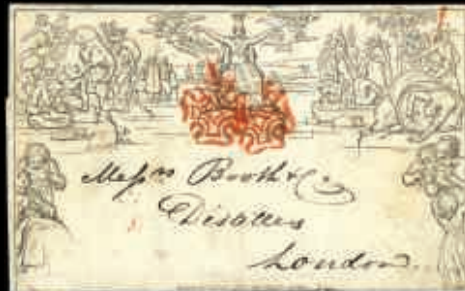 Messrs Booth & Co
Distillers
London